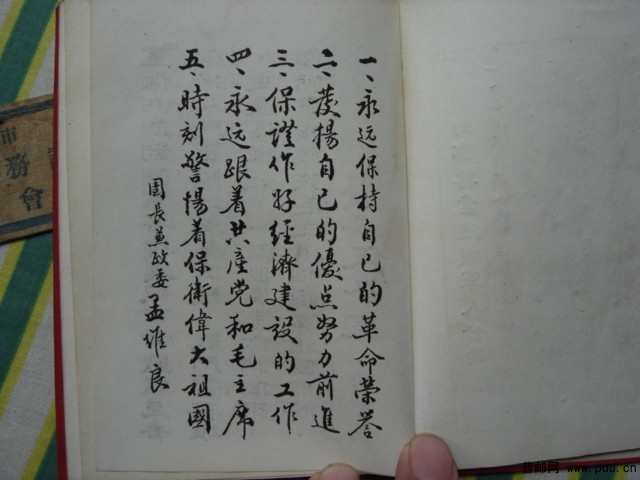 一、永远保持自己的革命荣誉
二、發揚自己的優点努力前進
三、保証作好經濟建設的工作
四、永远跟着共産党和毛主席
五、時刻警惕着保衛偉大祖國
团長兼政委 孟维良
市
務
會
藏邮网 www.puu.cn